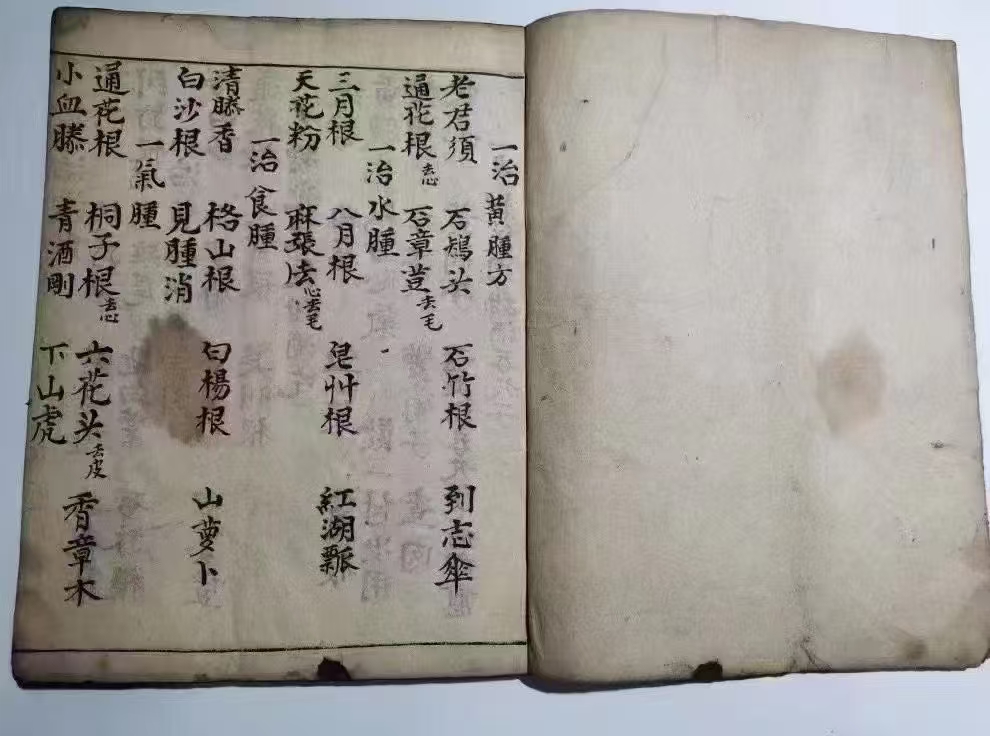 一治黃腫方
老君須 石鴂头 石竹根 到志傘
通花根去心 石章荳去毛
一治水腫
三月根 八月根 皂艸根 紅湖瓢
天花粉 麻張法心去毛
一治食腫
清藤香 格山根 白楊根 山萝卜
白沙根 見腫消
一氣腫
通花根 桐子根去心 六花头去皮 香章木
小血藤 青酒剛 下山虎